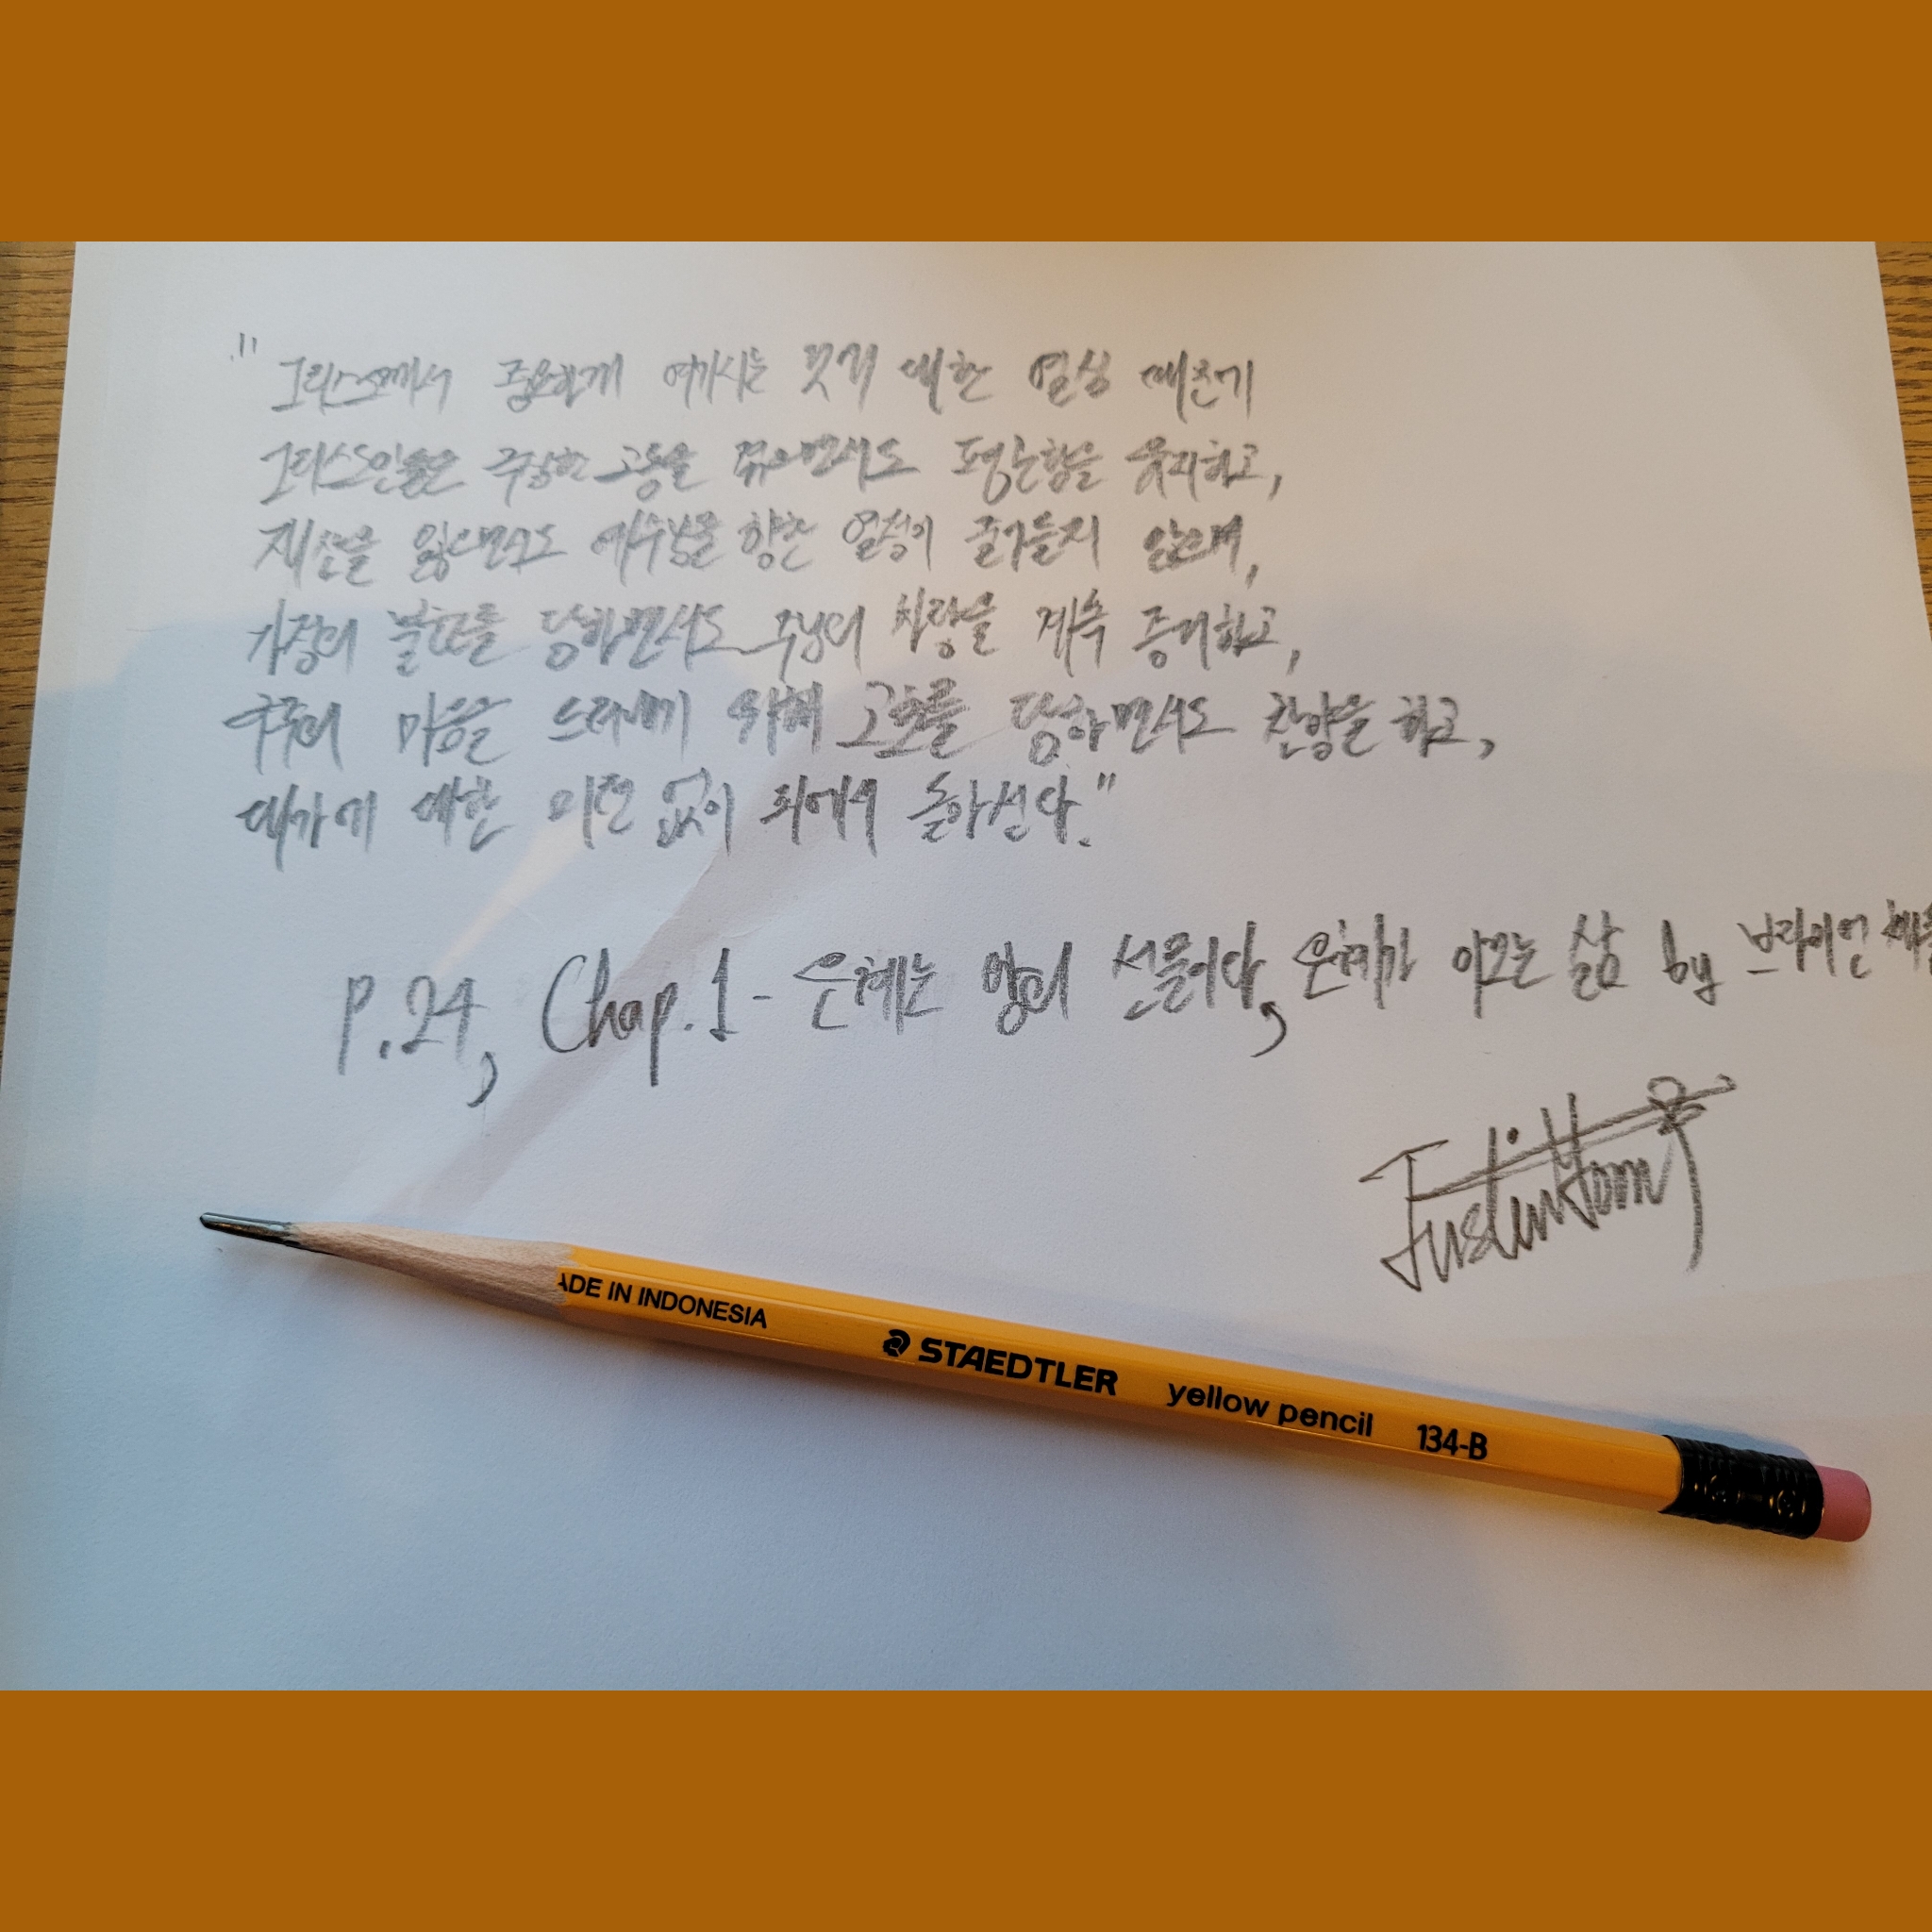 "그리스도께서 중요하게 여기시는 것에 대한 열심 때문에
그리스도인들은 극심한 고통을 겪으면서도 평온함을 유지하고,
재산을 잃으면서도 예수님을 향한 열정이 줄어들지 않으며,
가정의 불화를 당하면서도 주님의 사랑을 계속 증거하고,
구주의 마음을 드러내기 위해 고초를 당하면서도 찬양을 하고,
대가에 대한 미련 없이 죄에서 돌아선다."
P.24, Chap.1 - 은혜는 왕의 선물이다, 은혜가 이끄는 삶 by 브라이언
JustinHong
ADE IN INDONESIA STAEDTLER yellow pencil 134-B